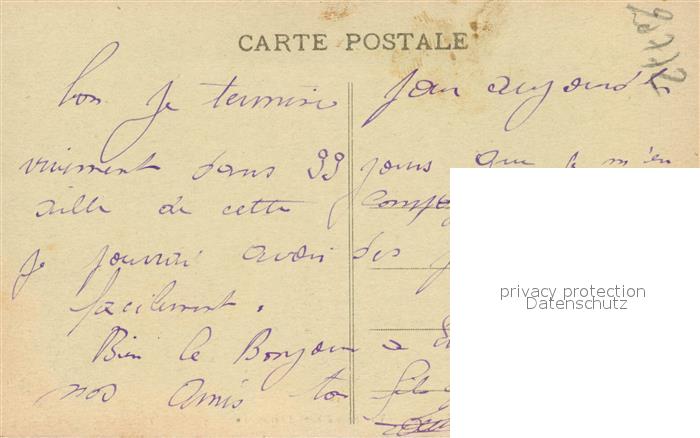 CARTE POSTALE
bon je termine pour aujourd'h
vivement dans 99 jours que je m'en
aille de cette
je pourrai avoir des
facilement.
Bien le Bonjour a
nos amis ton fils
privacy protection
Datenschutz